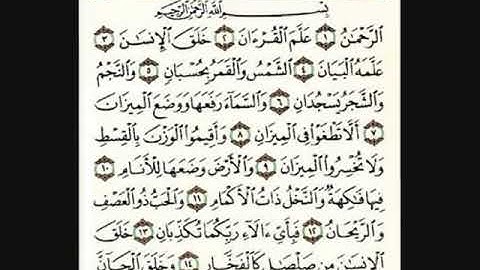 بِسْمِ ٱللَّهِ ٱلرَّحْمَٰنِ ٱلرَّحِيمِ
ٱلرَّحْمَٰنُ ۝١ عَلَّمَ ٱلْقُرْءَانَ ۝٢ خَلَقَ ٱلْإِنسَٰنَ ۝٣
عَلَّمَهُ ٱلْبَيَانَ ۝٤ ٱلشَّمْسُ وَٱلْقَمَرُ بِحُسْبَانٍ ۝٥ وَٱلنَّجْمُ
وَٱلشَّجَرُ يَسْجُدَانِ ۝٦ وَٱلسَّمَآءَ رَفَعَهَا وَوَضَعَ ٱلْمِيزَانَ
۝٧ أَلَّا تَطْغَوْا۟ فِى ٱلْمِيزَانِ ۝٨ وَأَقِيمُوا۟ ٱلْوَزْنَ بِٱلْقِسْطِ
وَلَا تُخْسِرُوا۟ ٱلْمِيزَانَ ۝٩ وَٱلْأَرْضَ وَضَعَهَا لِلْأَنَامِ ۝١٠
فِيهَا فَٰكِهَةٌ وَٱلنَّخْلُ ذَاتُ ٱلْأَكْمَامِ ۝١١ وَٱلْحَبُّ ذُو ٱلْعَصْفِ
وَٱلرَّيْحَانُ ۝١٢ فَبِأَىِّ ءَالَآءِ رَبِّكُمَا تُكَذِّبَانِ ۝١٣ خَلَقَ
ٱلْإِنسَٰنَ مِن صَلْصَٰلٍ كَٱلْفَخَّارِ ۝١٤ وَخَلَقَ ٱلْجَآنَّ